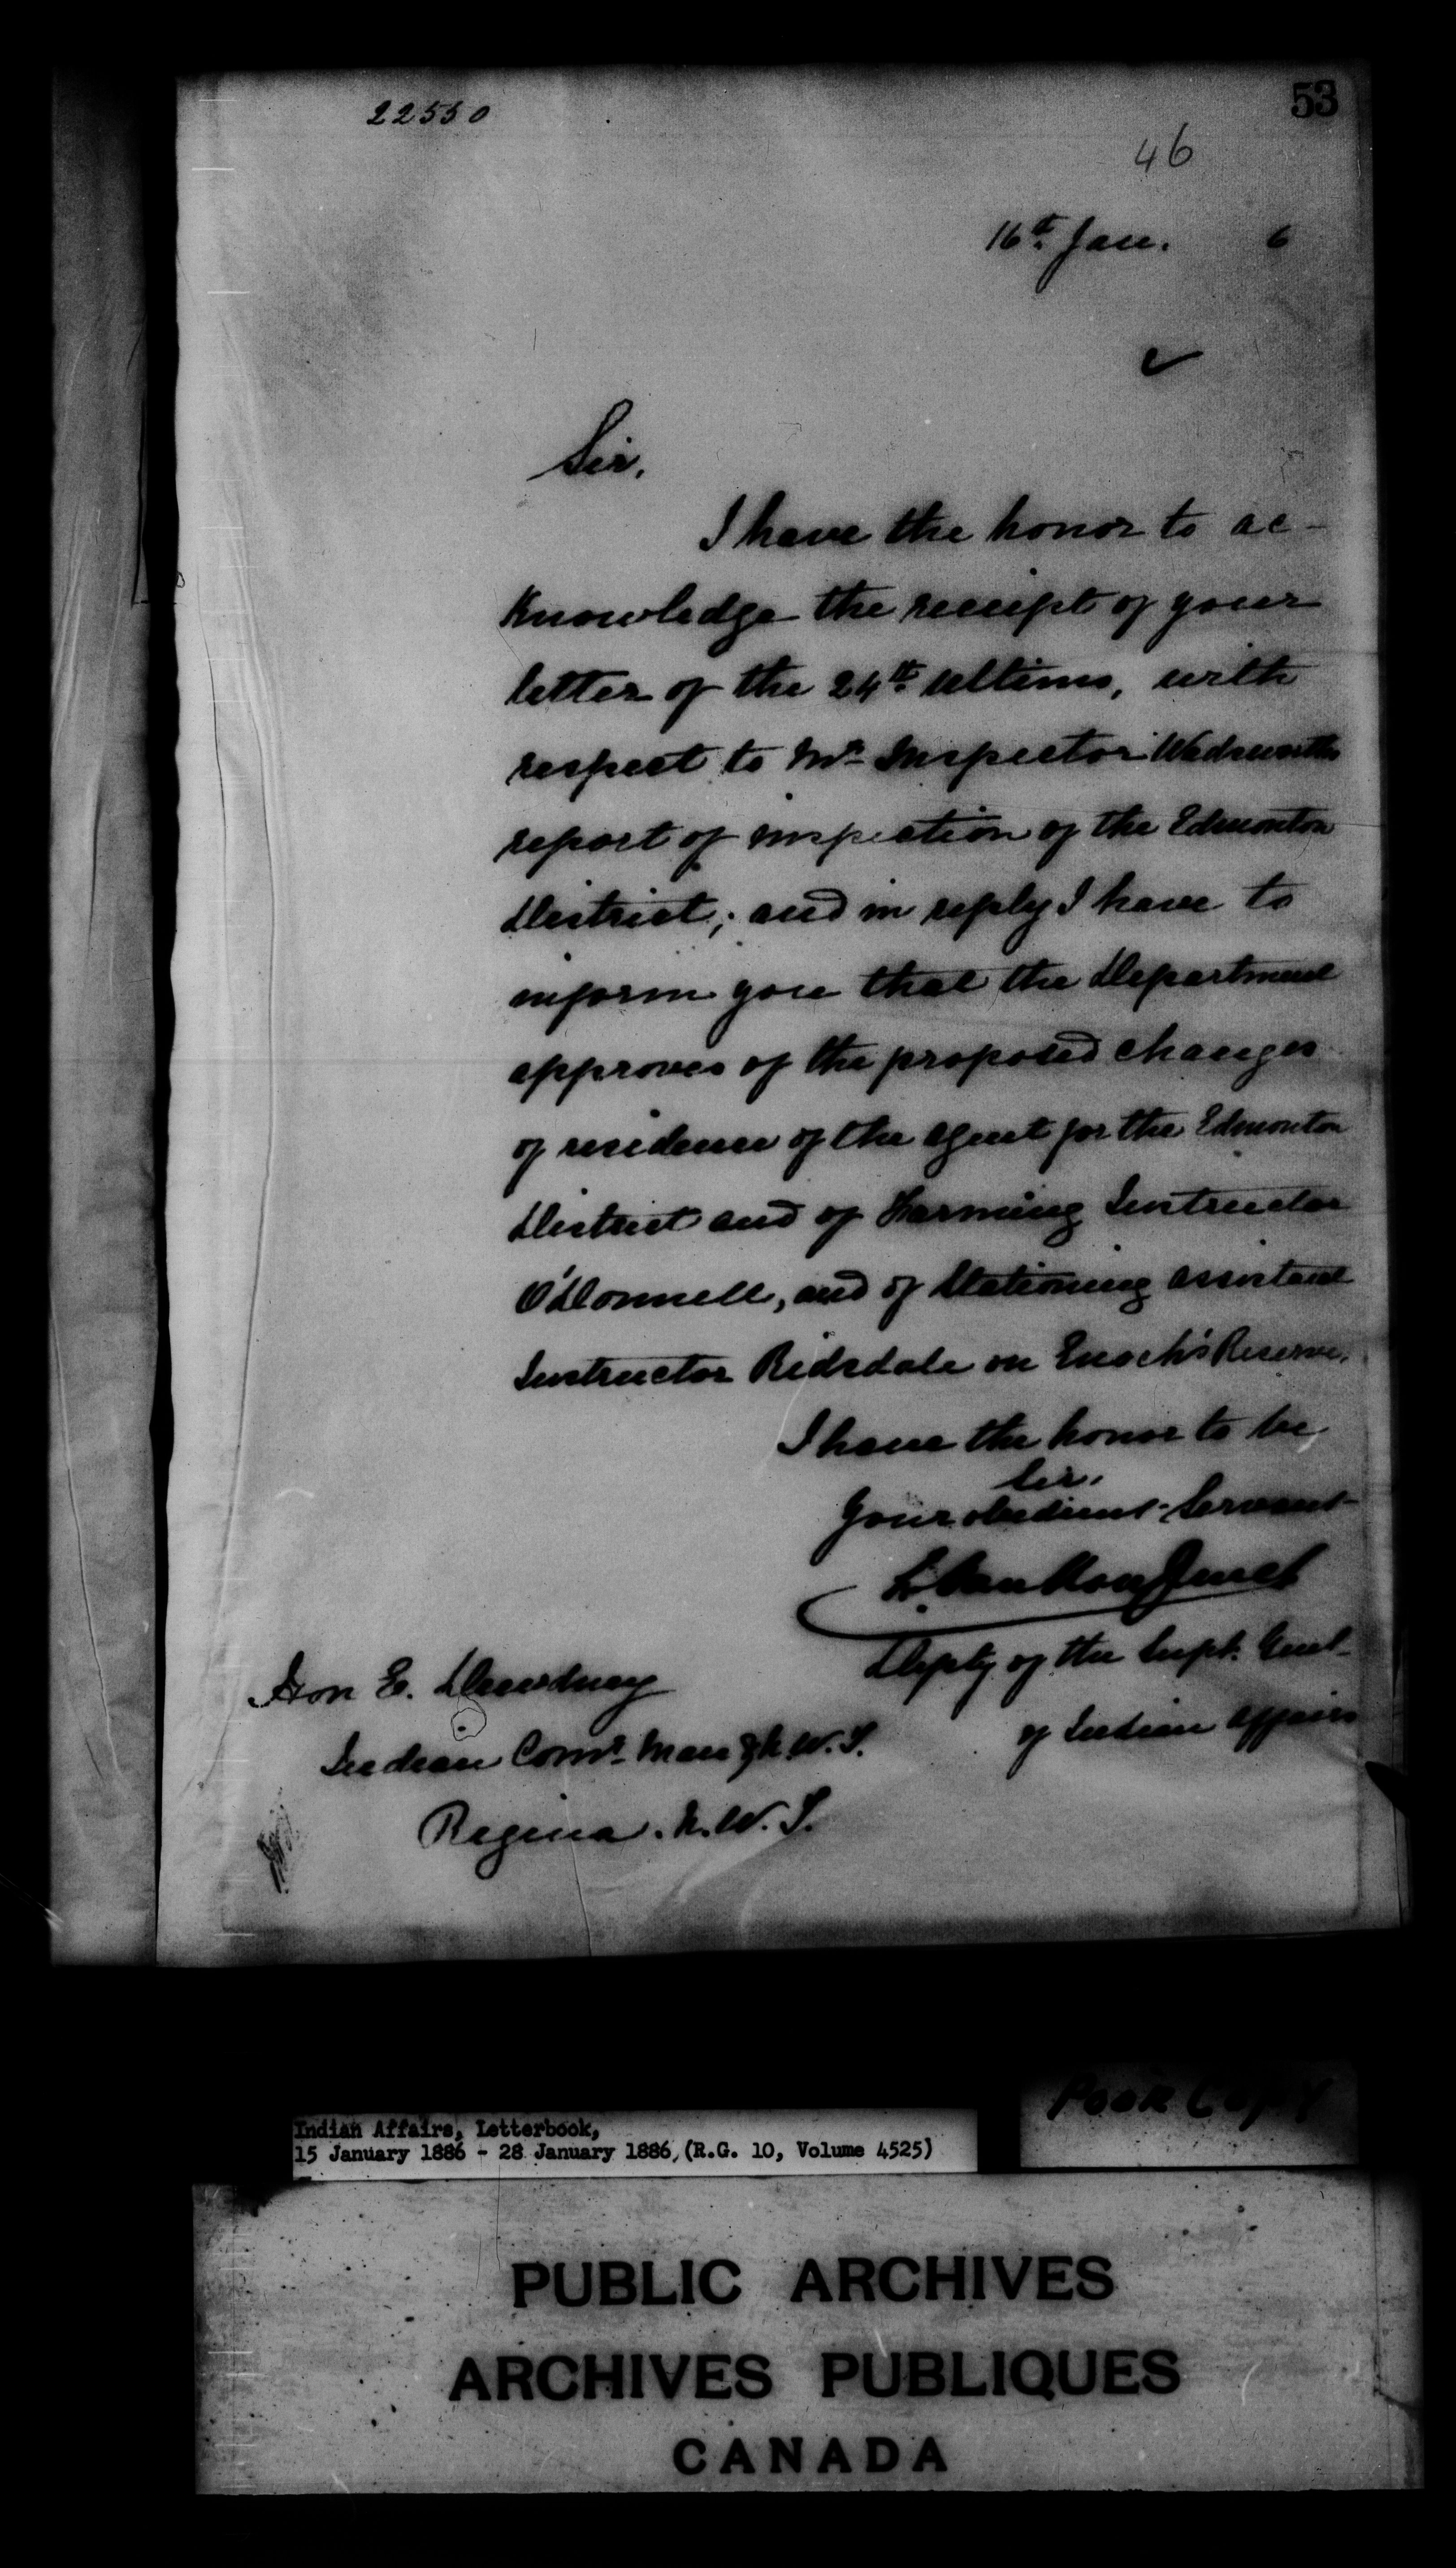 22550
53
46
16th Jan. 6
Sir,
I have the honor to ac-
knowledge the receipt of your
letter of the 24th ultimo, with
respect to Mr Inspector Wadsworth's
report of inspection of the Edmonton
District; and in reply I have to
inform you that the Department
approves of the proposed changes
of residence of the agent for the Edmonton
District and of Farming Instructor
O'Donnell, and of stationing assistant
Instructor Ridsdale on Enoch's Reserve.
I have the honor to be
Sir,
Your obedient Servant
L. VanKoughnet
Depty of the Supt. Genl.
of Indian Affairs
Hon E. Dewdney
Indian Comr. Man & N.W.T.
Regina. N.W.T.
Poor Copy
Indian Affairs, Letterbook,
15 January 1886 - 28 January 1886, (R.G. 10, Volume 4525)
PUBLIC ARCHIVES
ARCHIVES PUBLIQUES
CANADA